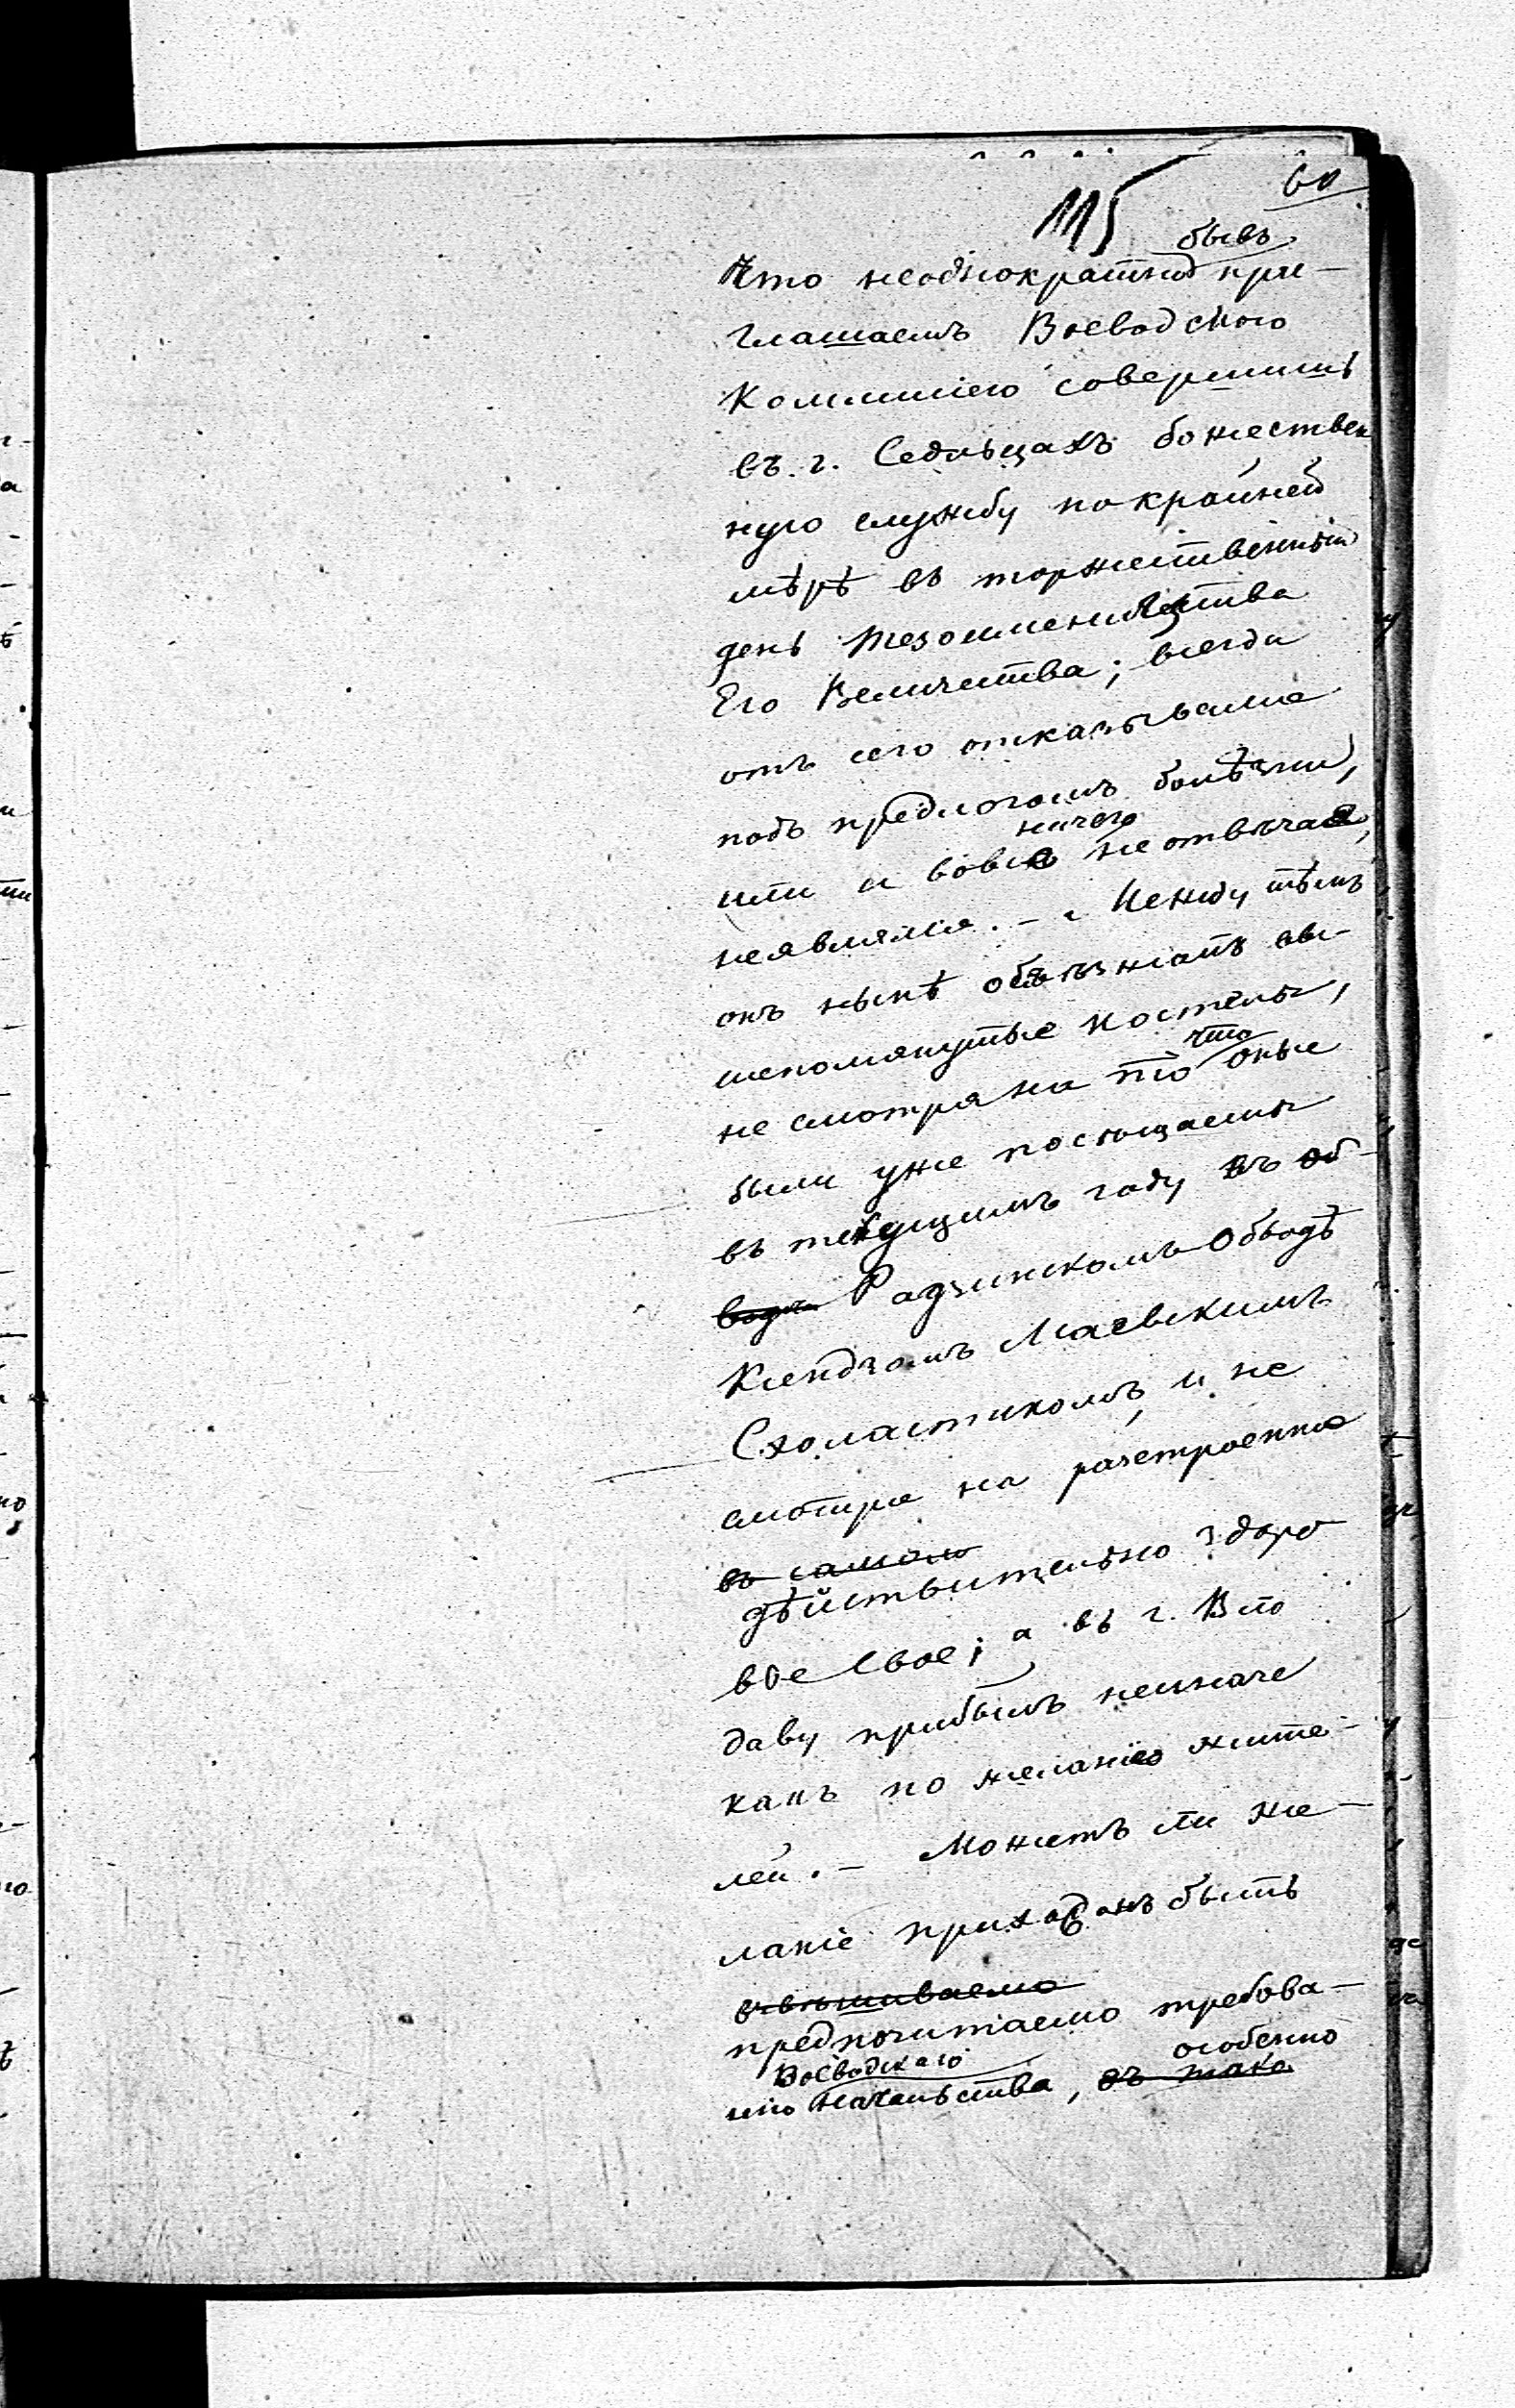 60
115
бывъ
Что неоднократно при-
глашаемъ Воеводскою
Коммисіею совершить
въ г. Седльцахъ божествен
ную службу по крайней
мѣрѣ въ торжественный
день тезоименитства
Его Величества; всегда
отъ сего отказывался
подъ предлогомъ болѣзни,
ничего
или и вовсе не отвѣчая,
неявлялся. - Между тѣмъ
онъ нынѣ объѣзжалъ вы-
шепомянутые костелы,
что
не смотря на то оные
были уже посѣщаемы
въ текущимъ году въ об-
водѣ Радзинскомъ Обводѣ
Ксендзомъ Маевскимъ
Схоластикомъ, и не
смотря на разстроенно
въ самомъ
дѣйствительно здоро
вье свое; а въ г. Вло
даву прибылъ неиначе
какъ по желанію жите-
лей. - Можетъ ли же-
ланіе прихожанъ быть
предпочитаемо требова-
Воеводскаго особенно
нію Начальства, въ тако